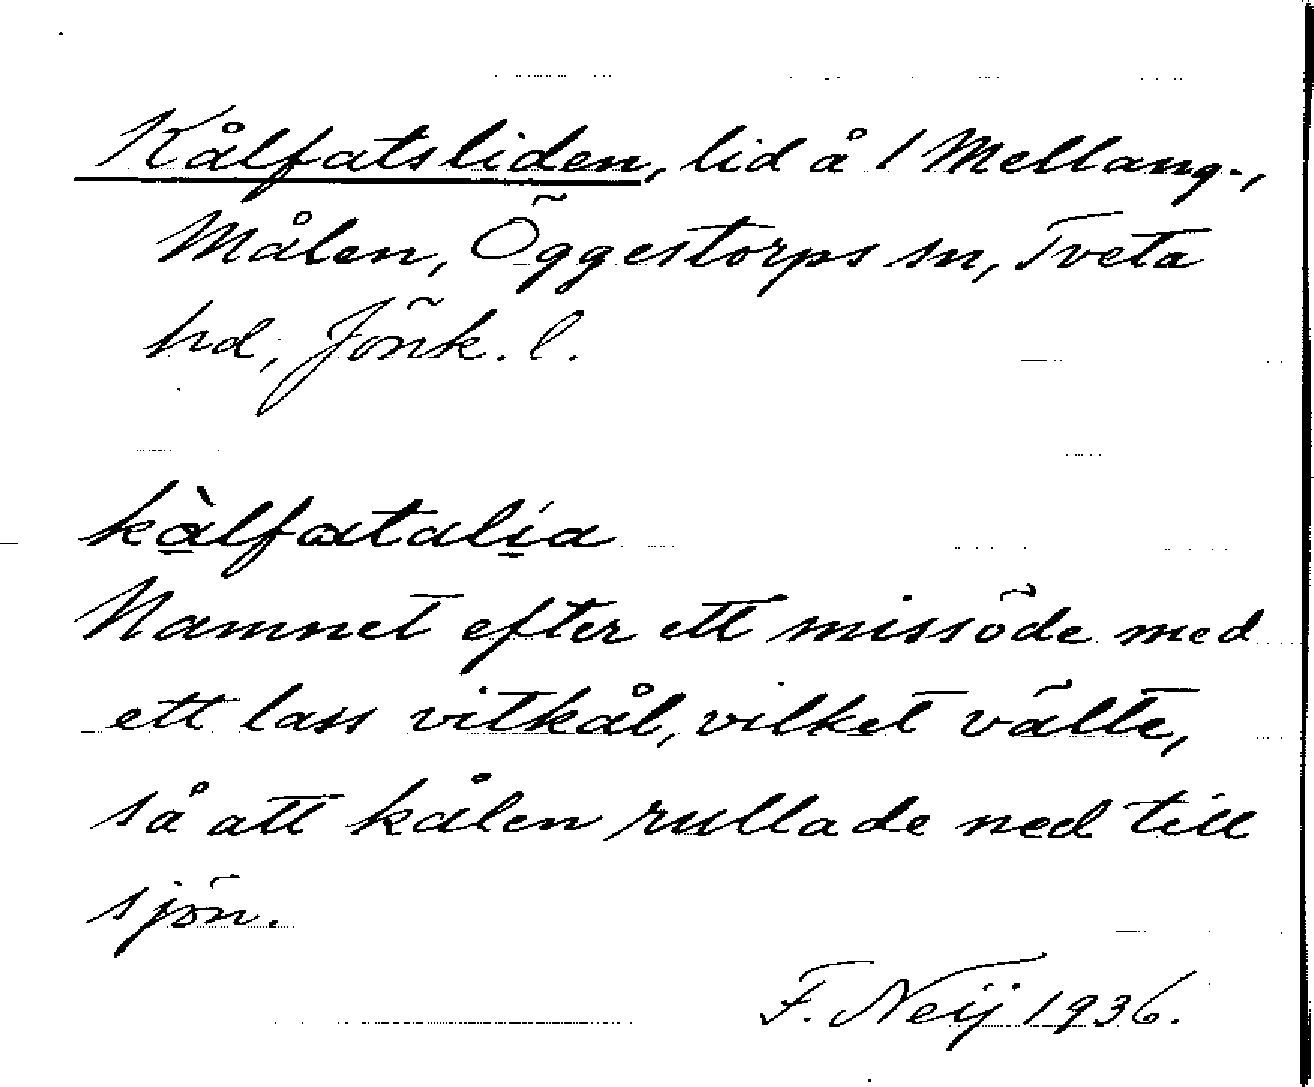 Kålfatsliden, lid å 1 Mellang.,
Målen, Öggestorps sn, Tveta
hd, Jönk. l.
kàlfatalia
Namnet efter ett missöde med
ett lass vitkål, vilket välte,
så att kålen rullade ned till
sjön.
F. Neij 1936.